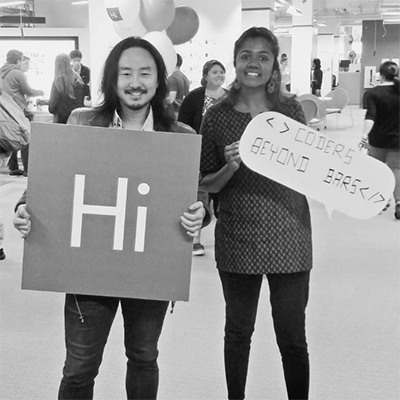 Hi
<> CODERS
BEYOND BARS</>